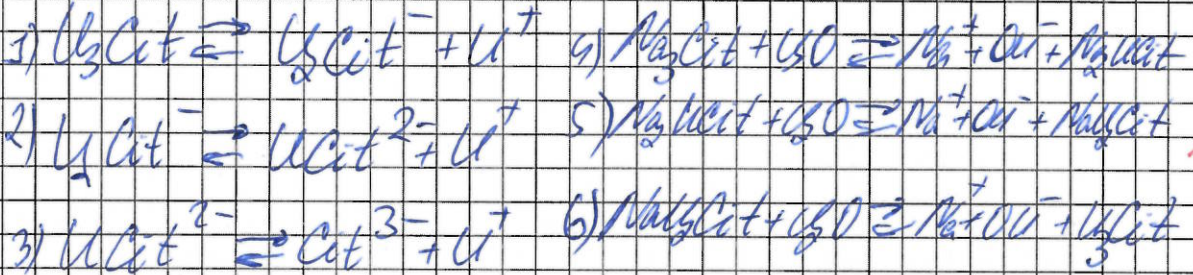 1) H₃Cit ⇄ H₂Cit⁻ + H⁺
2) H₂Cit⁻ ⇄ HCit²⁻ + H⁺
3) HCit²⁻ ⇄ Cit³⁻ + H⁺
4) Na₃Cit + H₂O ⇄ Na⁺ + OH⁻ + Na₂HCit
5) Na₂HCit + H₂O ⇄ Na⁺ + OH⁻ + NaH₂Cit
6) NaH₂Cit + H₂O ⇄ Na⁺ + OH⁻ + H₃Cit